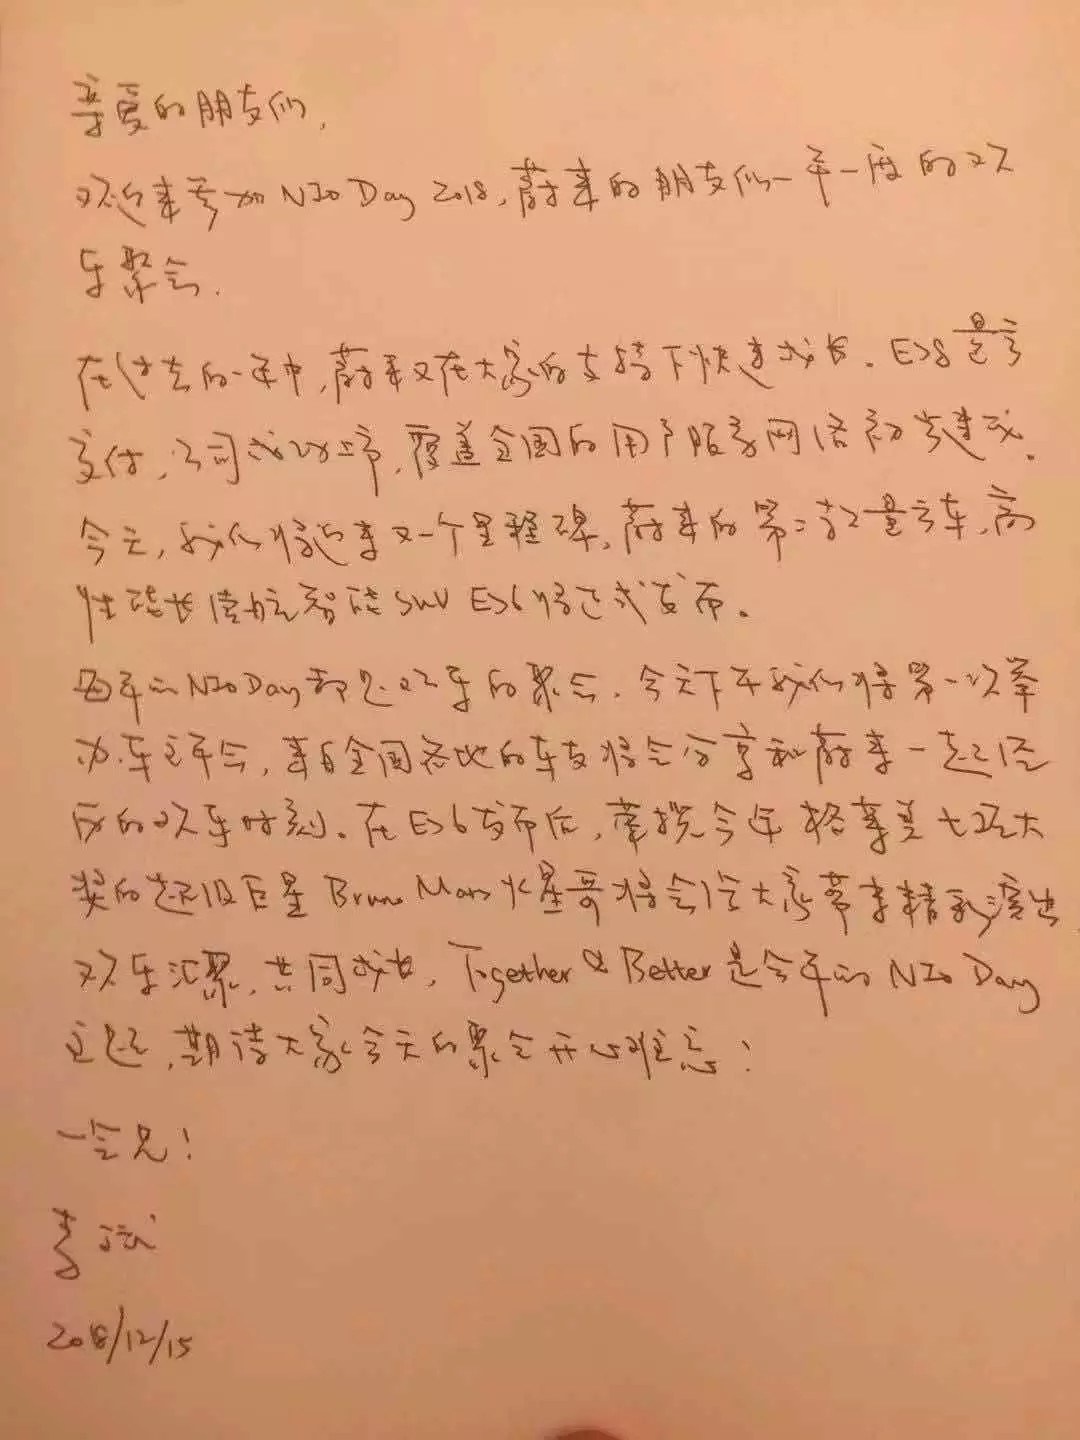 亲爱的朋友们,
欢迎来参加NIO Day 2018,蔚来的朋友们一年一度的欢
乐聚会.
在过去的一年中,蔚来又在大家的支持下快速成长.ES8量产
交付,公司成功上市,覆盖全国的用户服务网络初步建成.
今天,我们将迎来又一个里程碑,蔚来的第二款量产车,高
性能长续航智能SUV ES6将正式发布。
每年的NIO Day都是欢乐的聚会.今天下午我们将第一次举
办车主年会,来自全国各地的车友将会分享和蔚来一起经
历的欢乐时刻.在ES6发布后,荣揽今年格莱美七项大
奖的超级巨星Bruno Mars火星哥将会给大家带来精彩演出
欢乐汇聚,共同成长,Together & Better是今年的NIO Day
主题,期待大家今天的聚会开心难忘!
一会见!
李斌
2018/12/15